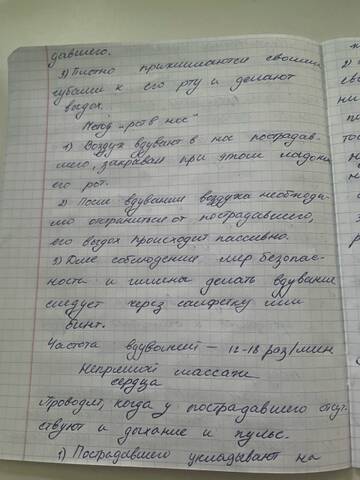 давшего.
3) Плотно прижимаются своими
губами к его рту и делают
выдох.
Метод „рот в нос"
1) Воздух вдувают в нос пострадав-
шего, закрывая при этом ладонью
его рот.
2) После вдувания воздуха необходи-
мо отстраниться от пострадавшего,
его выдох происходит пассивно.
3) Для соблюдения мер безопас-
ности и гигиены делать вдувание
следует через салфетку или
бинт.
Частота вдуваний – 12-18 раз/мин
Непрямой массаж
сердца
Проводят, когда у пострадавшего отсут-
ствуют и дыхание и пульс.
1) Пострадавшего укладывают на